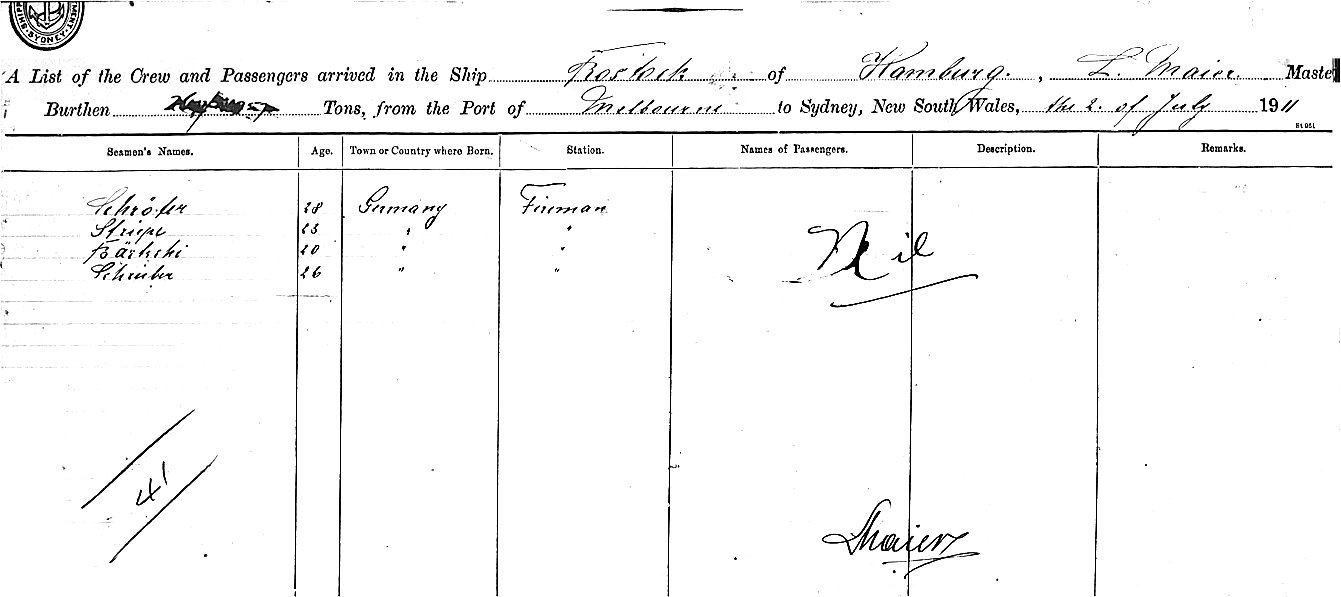 MENT. SYDNEY. SHIP
A List of the Crew and Passengers arrived in the Ship Rostock of Hamburg. , L. Maier Maste
Burthen Tons, from the Port of Melbourne to Sydney, New South Wales, the 2. of July 1911
Seamen's Names. Age. Town or Country where Born. Station. Names of Passengers. Description. Remarks.
Schröter 28 Germany Fireman
Striepe 23 " "
20 " "
26 " "
Nil
41
LMaier